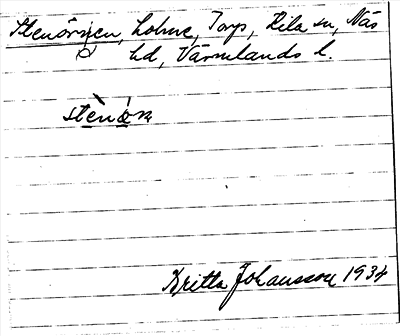 Stenörnen, Lohne, Torp, Kila sn, Näs
hd, Värmlands l.
stènö̀n
Britta Johansson 1934